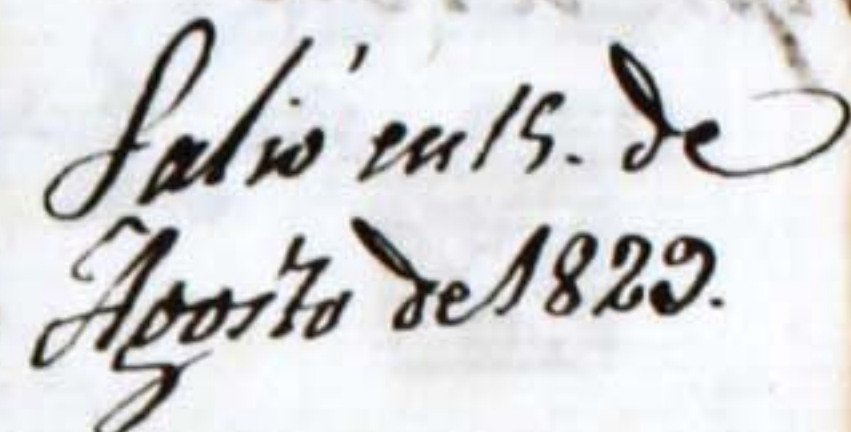 Salió en 15. de
Agosto de 1829.